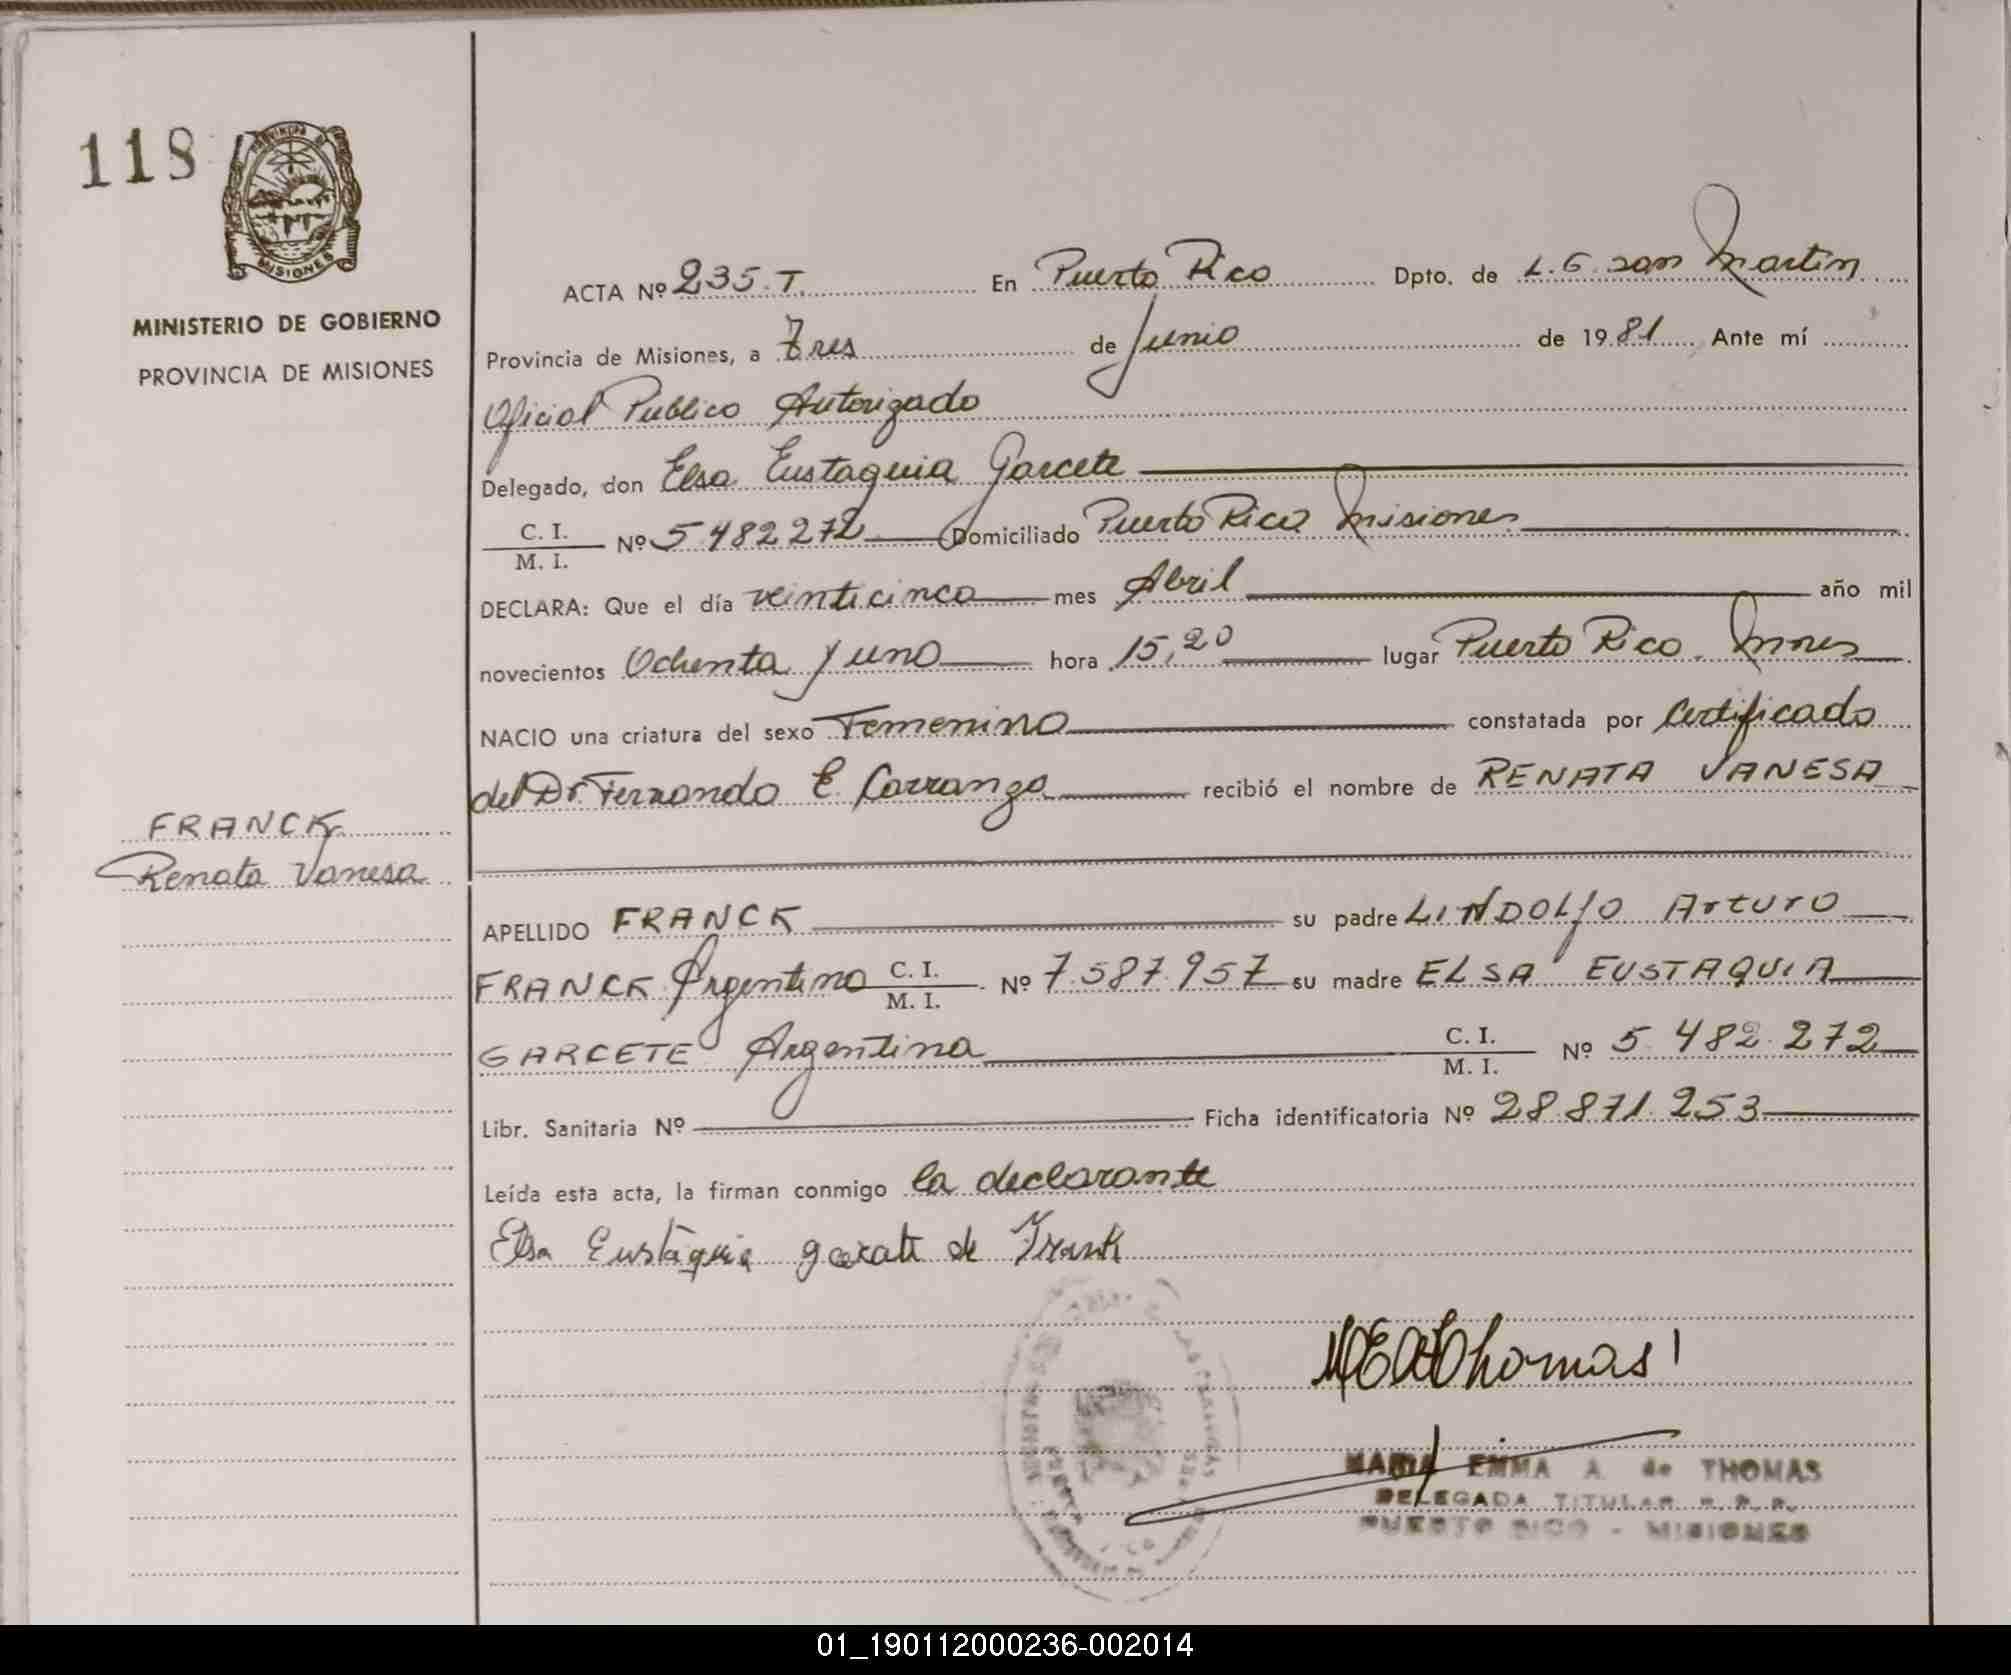 118
PROVINCIA DE
MISIONES
MINISTERIO DE GOBIERNO
PROVINCIA DE MISIONES
FRANCK
Renata Vanesa
ACTA Nº 235.T. En Puerto Rico Dpto. de L.G. san Martin
Provincia de Misiones, a Tres de Junio de 1981 Ante mí
Oficial Publico Autorizado
Delegado, don Elsa Eustaquia Garcete
C. I.
M. I. Nº 5 482 272 Domiciliado Puerto Rico Misiones
DECLARA: Que el día veinticinco mes Abril año mil
novecientos Ochenta y uno hora 15,20 lugar Puerto Rico. Mnes
NACIO una criatura del sexo Femenino constatada por Certificado
del Dr. Fernando E. Carranza recibió el nombre de RENATA VANESA
APELLIDO FRANCK su padre LINDOLFO ARTURO
FRANCK Argentino C. I. M. I. Nº 7.587.957 su madre ELSA EUSTAQUIA
GARCETE Argentina C. I. M. I. Nº 5 482.272
Libr. Sanitaria Nº Ficha identificatoria Nº 28.871.253
Leída esta acta, la firman conmigo la declarante
Elsa Eustàquia garcete de Frank
MEAThomas
MARIA EMMA A de THOMAS
DELEGADA TITULAR R. P. P.
PUERTO RICO - MISIONES
01_190112000236-002014